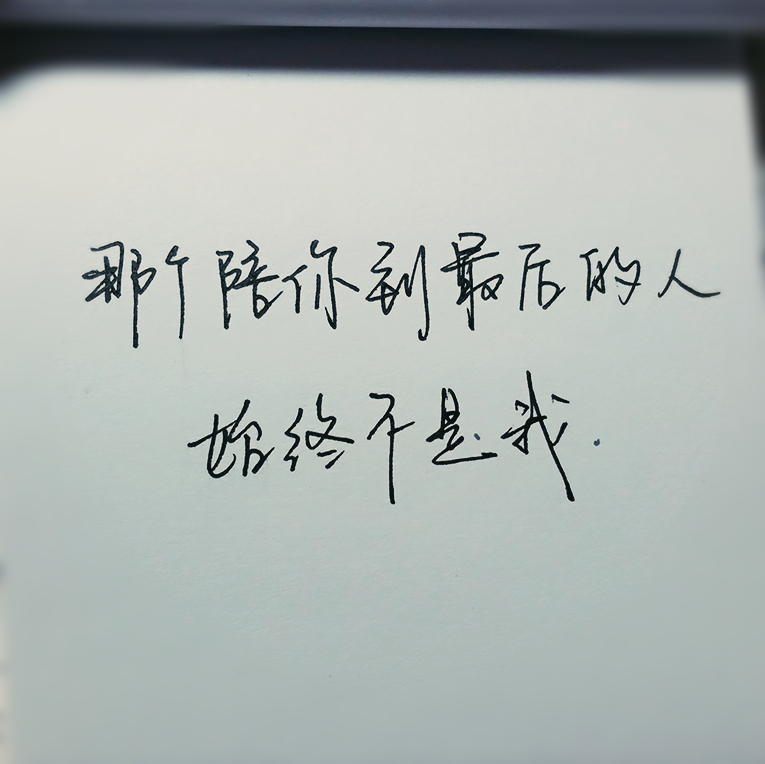 那个陪你到最后的人
始终不是我.